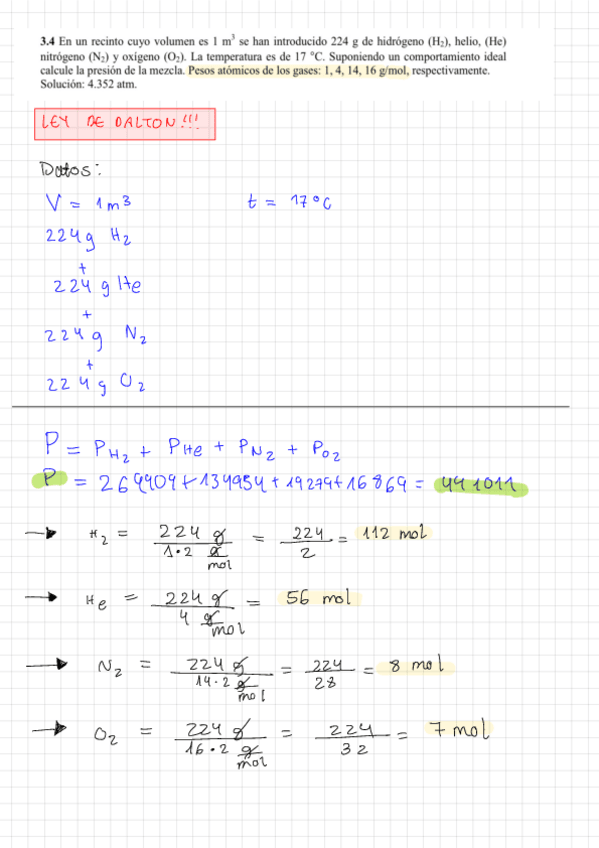 3.4 En un recinto cuyo volumen es 1 m³ se han introducido 224 g de hidrógeno (H₂), helio, (He)
nitrógeno (N₂) y oxígeno (O₂). La temperatura es de 17 °C. Suponiendo un comportamiento ideal
calcule la presión de la mezcla. Pesos atómicos de los gases: 1, 4, 14, 16 g/mol, respectivamente.
Solución: 4.352 atm.
LEY DE DALTON!!!
Datos:
V = 1m³ t = 17°C
224g H₂
+
224 g He
+
224g N₂
+
224g O₂
P = P_H₂ + P_He + P_N₂ + P_O₂
P = 269909 + 134954 + 19279 + 16869 = 441011
→ H₂ = 224 g / 1·2 g/mol = 224/2 = 112 mol
→ He = 224 g / 4 g/mol = 56 mol
→ N₂ = 224 g / 14·2 g/mol = 224/28 = 8 mol
→ O₂ = 224 g / 16·2 g/mol = 224/32 = 7 mol